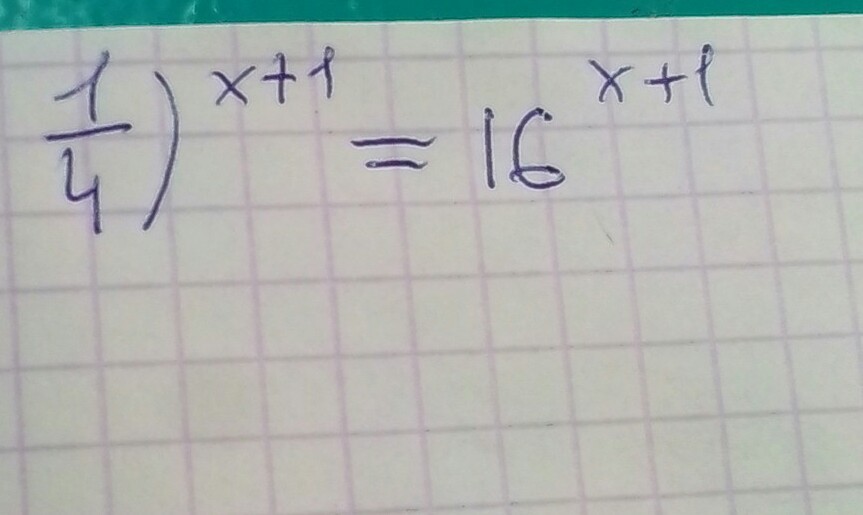 \frac{1}{4})^{x+1} = 16^{x+1}